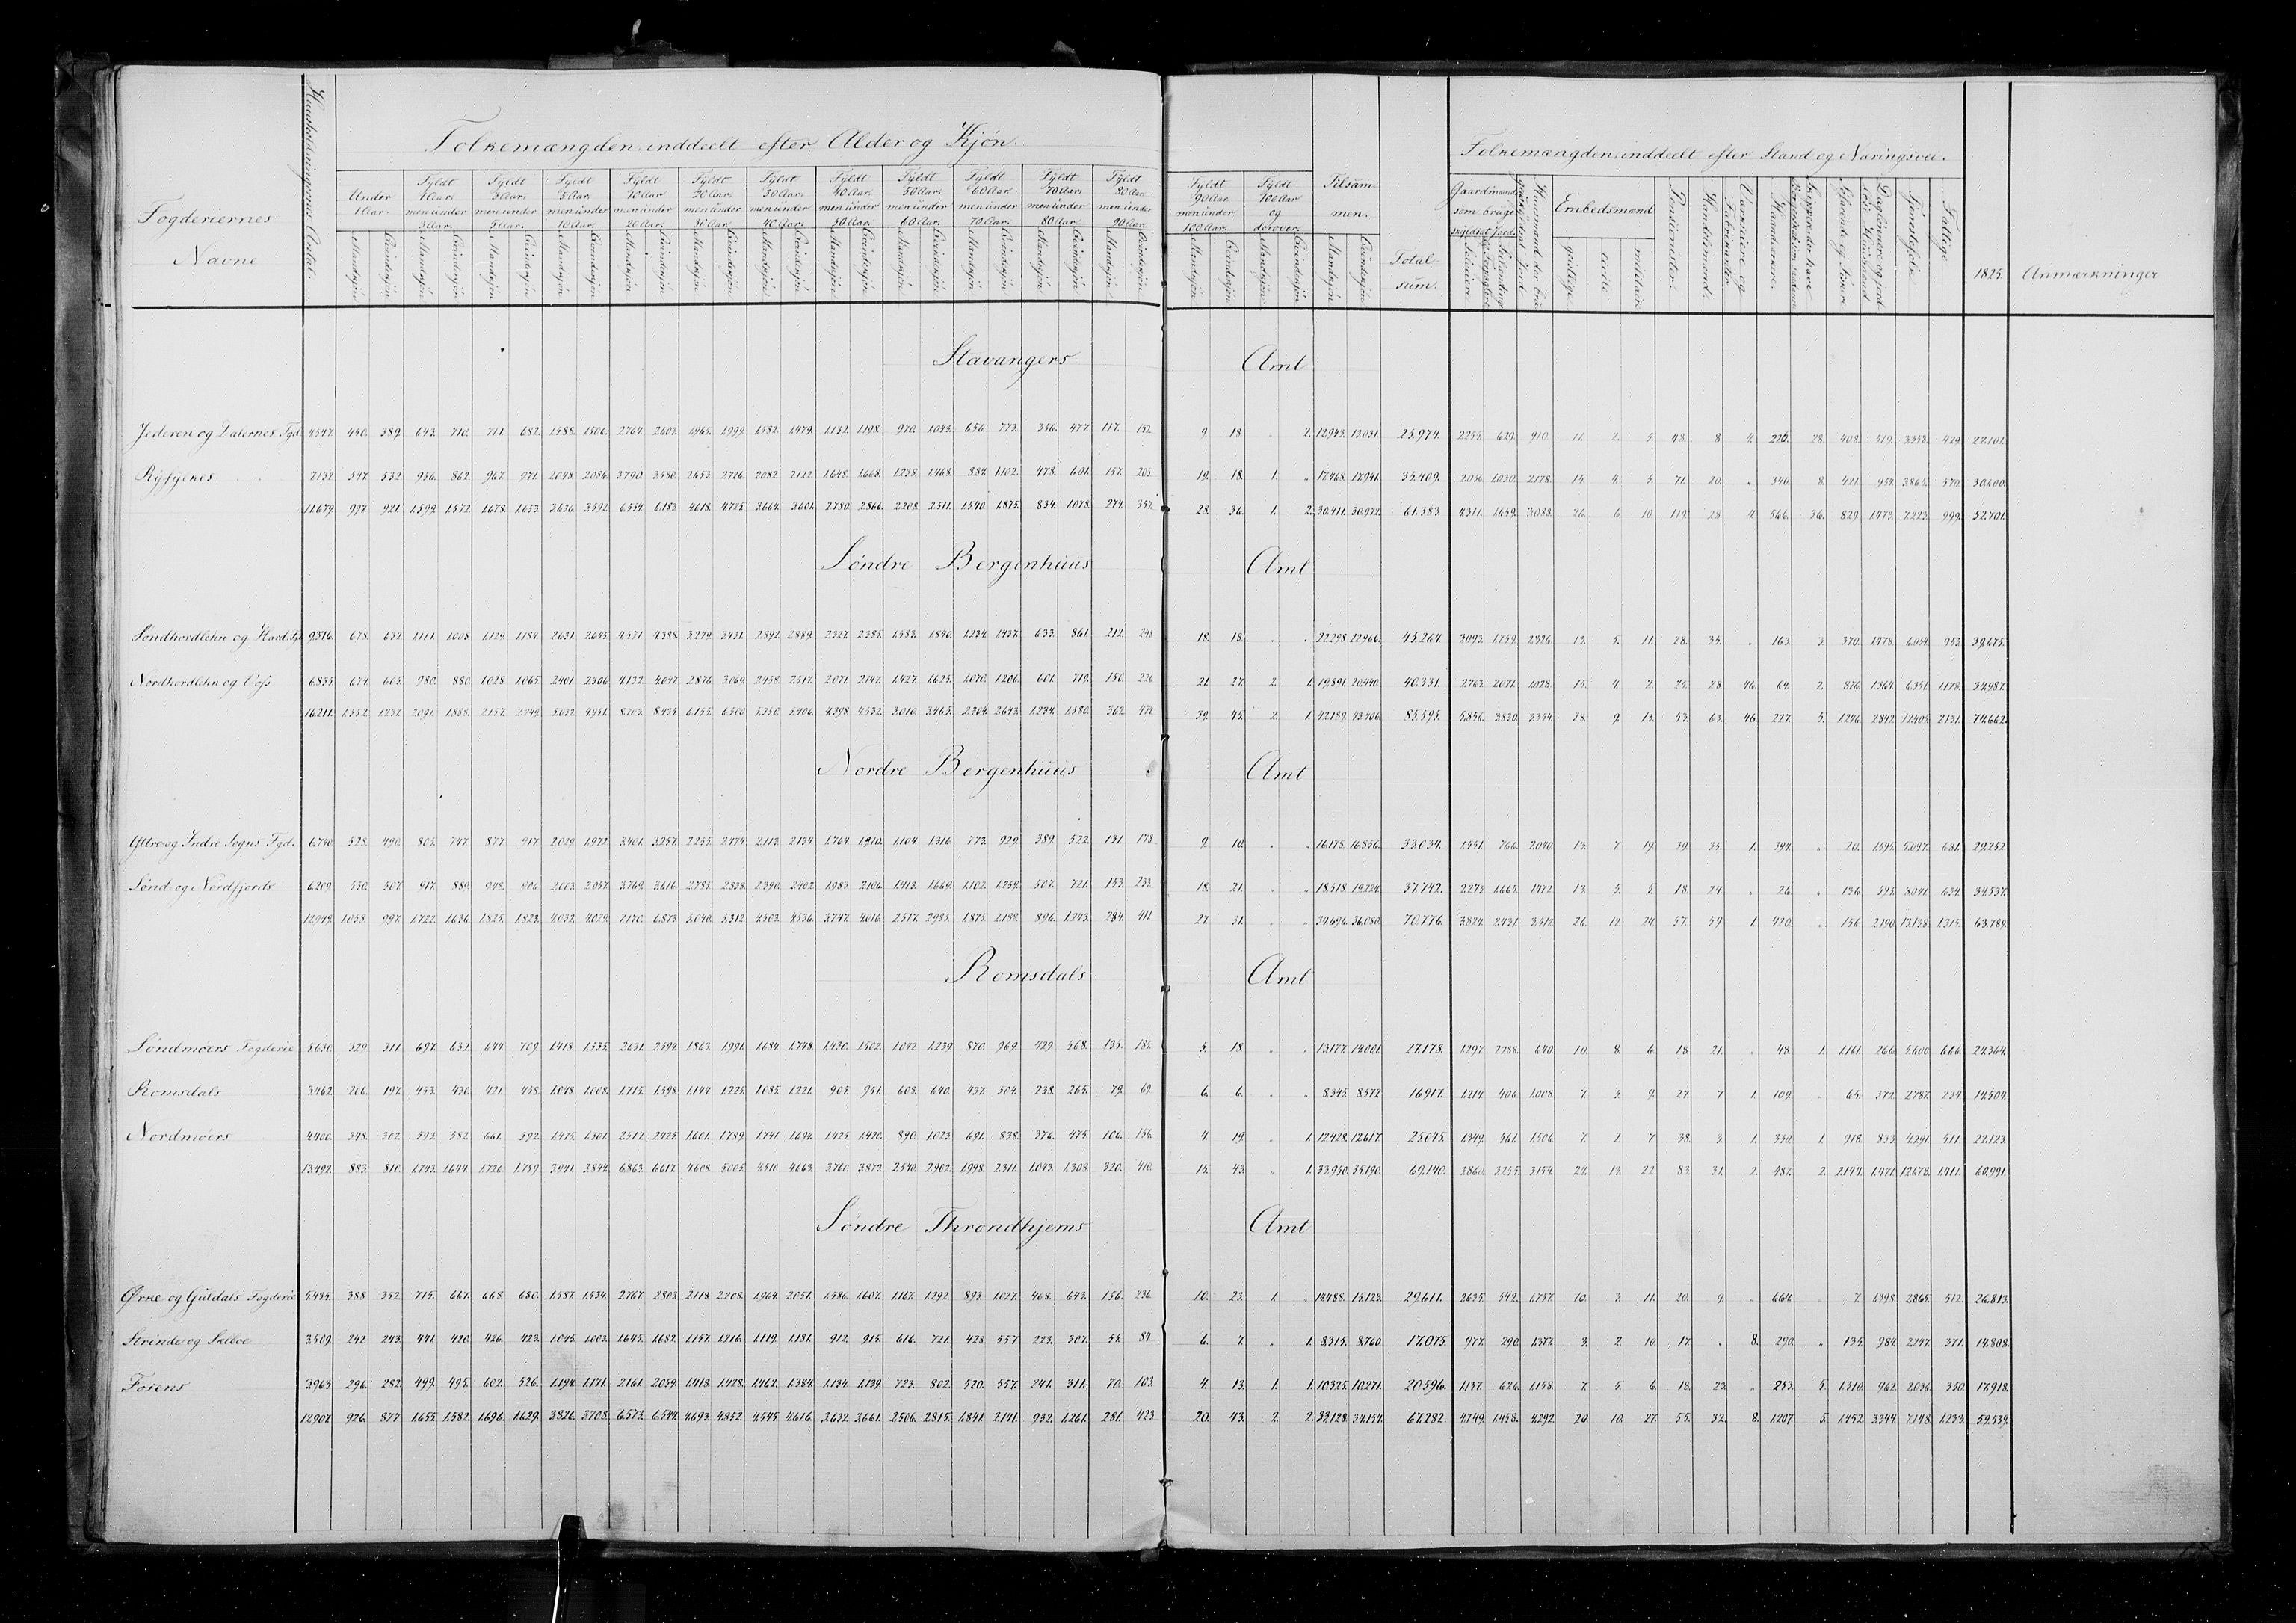 Folkemængden inddeelt efter Alder og Kjøn.
Folkemængden inddeelt efter Stand og Næringsvei.
Fogderiernes Navne
Huusholdningernes Antal
Under 1 Aar.
Fyldt 1 Aar. men under 3 Aar.
Fyldt 3 Aar. men under 5 Aar.
Fyldt 5 Aar. men under 10 Aar.
Fyldt 10 Aar men under 20 Aar.
Fyldt 20 Aar. men under 30 Aar.
Fyldt 30 Aar. men under 40 Aar.
Fyldt 40 Aar. men under 50 Aar.
Fyldt 50 Aar. men under 60 Aar.
Fyldt 60 Aar. men under 70 Aar.
Fyldt 70 Aar. men under 80 Aar.
Fyldt 80 Aar. men under 90 Aar.
Fyldt 90 Aar. men under 100 Aar.
Fyldt 100 Aar og derover.
Tilsammen.
Mandkjøn Qvindekjøn
Total sum.
Gaardmænd som bruge skyldsat Jord.
Embedsmænd
geistlige civile militair
Pensionister
Handelsmænd
Haandværkere
Tjenestefolk
Fattige
1825
Anmærkninger
Stavangers Amt
Jederen og Dalernes Fgd. 4547. 450. 389. 643. 710. 711. 682. 1588. 1506. 2764. 2603. 1965. 1999. 1582. 1479. 1132. 1198. 970. 1043. 656. 773. 356. 477. 117. 152. 9. 18. . 2. 12943. 13031. 25974. 2255. 629. 910. 11. 2. 5. 48. 8. 4. 226. 28. 408. 519. 3358. 429. 22101.
Ryfylkes 7132. 547. 532. 956. 862. 967. 971. 2048. 2086. 3790. 3580. 2653. 2726. 2082. 2122. 1648. 1668. 1238. 1468. 884. 1102. 478. 601. 157. 205. 19. 18. 1. . 17468. 17941. 35409. 2056. 1030. 2178. 15. 4. 5. 71. 20. . 340. 8. 421. 954. 3865. 570. 30600.
11679. 997. 921. 1599. 1572. 1678. 1653. 3636. 3592. 6554. 6183. 4618. 4725. 3664. 3601. 2780. 2866. 2208. 2511. 1540. 1875. 834. 1078. 274. 357. 28. 36. 1. 2. 30411. 30972. 61383. 4311. 1659. 3088. 26. 6. 10. 119. 28. 4. 566. 36. 829. 1473. 7223. 999. 52701.
Søndre Bergenhuus Amt
Søndhordlehn og Hard. Fgd. 9376. 678. 632. 1111. 1008. 1129. 1184. 2631. 2645. 4571. 4388. 3279. 3431. 2892. 2889. 2327. 2385. 1583. 1840. 1234. 1437. 633. 861. 212. 248. 18. 18. . . 22298. 22966. 45264. 3093. 1759. 2326. 13. 5. 11. 28. 35. . 163. 3. 370. 1478. 6054. 953. 39675.
Nordhordlehn og Vofs 6835. 674. 605. 980. 880. 1028. 1065. 2401. 2306. 4132. 4047. 2876. 3069. 2458. 2517. 2071. 2147. 1427. 1625. 1070. 1206. 601. 719. 150. 226. 21. 27. 2. 1. 19891. 20440. 40331. 2763. 2071. 1028. 15. 4. 2. 25. 28. 46. 64. 2. 876. 1364. 6351. 1178. 34987.
16211. 1352. 1237. 2091. 1888. 2157. 2249. 5032. 4951. 8703. 8435. 6155. 6500. 5350. 5406. 4398. 4532. 3010. 3465. 2304. 2643. 1234. 1580. 362. 474. 39. 45. 2. 1. 42189. 43406. 85595. 5856. 3830. 3354. 28. 9. 13. 53. 63. 46. 227. 5. 1246. 2842. 12405. 2131. 74662.
Nordre Bergenhuus Amt
Yttre og Indre Sogns Fgd. 6740. 528. 490. 805. 747. 877. 917. 2029. 1972. 3401. 3257. 2255. 2474. 2113. 2134. 1764. 1910. 1104. 1316. 773. 929. 389. 522. 131. 178. 9. 10. . . 16178. 16856. 33034. 1551. 766. 2040. 13. 7. 19. 39. 35. 1. 394. . 20. 1595. 5097. 681. 29252
Sønd og Nordfjords 6209. 530. 507. 917. 889. 948. 906. 2003. 2057. 3769. 3616. 2785. 2838. 2390. 2402. 1983. 2106. 1413. 1669. 1102. 1259. 507. 721. 153. 233. 18. 21. . . 18518. 19224. 37742. 2273. 1665. 1472. 13. 5. 5. 18. 24. . 26. . 136. 595. 8041. 634. 34537.
12949. 1058. 997. 1722. 1636. 1825. 1823. 4032. 4029. 7170. 6873. 5040. 5312. 4503. 4536. 3747. 4016. 2517. 2985. 1875. 2188. 896. 1243. 284. 411. 27. 31. . . 34696. 36080. 70776. 3824. 2431. 3512. 26. 12. 24. 57. 59. 1. 420. . 156. 2190. 13138. 1315. 63789.
Romsdals Amt
Søndmøers Fogderie 5630. 329. 311. 697. 632. 644. 709. 1418. 1535. 2631. 2594. 1863. 1991. 1684. 1748. 1430. 1502. 1042. 1239. 870. 969. 429. 568. 135. 185. 5. 18. . . 13177. 14001. 27178. 1297. 2288. 640. 10. 8. 6. 18. 21. . 48. 1. 1161. 266. 5600. 666. 24364.
Romsdals 3462. 206. 197. 453. 430. 421. 458. 1048. 1008. 1715. 1598. 1144. 1225. 1085. 1221. 905. 951. 608. 640. 437. 504. 238. 265. 79. 69. 6. 6. . . 8345. 8572. 16917. 1214. 406. 1008. 7. 3. 9. 27. 7. 1. 109. . 65. 372. 2787. 234. 14504.
Nordmøers 4400. 348. 302. 593. 582. 661. 592. 1475. 1301. 2517. 2425. 1601. 1789. 1741. 1694. 1425. 1420. 890. 1023. 691. 838. 376. 475. 106. 156. 4. 19. . 1. 12428. 12617. 25045. 1349. 561. 1506. 7. 2. 7. 38. 3. 1. 330. 1. 918. 833. 4291. 511. 22123.
13492. 883. 810. 1743. 1644. 1726. 1759. 3941. 3844. 6863. 6617. 4608. 5005. 4510. 4663. 3760. 3873. 2540. 2902. 1998. 2311. 1043. 1308. 320. 410. 15. 43. . 1. 33950. 35190. 69140. 3860. 3255. 3154. 24. 13. 22. 83. 31. 2. 487. 2. 2144. 1471. 12678. 1411. 60991.
Søndre Throndhjems Amt
Ørke- og Guldals Fogderie 5435. 388. 352. 715. 667. 668. 680. 1587. 1534. 2767. 2803. 2118. 2208. 1964. 2051. 1586. 1607. 1167. 1292. 893. 1027. 468. 643. 156. 236. 10. 23. 1. . 14488. 15123. 29611. 2635. 542. 1757. 10. 3. 11. 20. 9. . 664. . 7. 1398. 2865. 512. 26813.
Strinde og Sælboe 3509. 242. 243. 441. 420. 426. 423. 1045. 1003. 1645. 1682. 1157. 1216. 1119. 1181. 912. 915. 616. 721. 428. 557. 223. 307. 55. 84. 6. 7. . 1. 8315. 8760. 17075. 977. 290. 1377. 3. 2. 10. 17. . 8. 290. . 135. 984. 2247. 371. 14808.
Fosens 3963. 296. 282. 499. 495. 602. 526. 1194. 1171. 2161. 2059. 1418. 1428. 1462. 1384. 1134. 1139. 723. 802. 520. 557. 241. 311. 70. 103. 4. 13. 1. 1. 10325. 10271. 20596. 1137. 626. 1158. 7. 5. 6. 18. 23. . 253. 5. 1310. 962. 2036. 350. 17918.
12907. 926. 877. 1655. 1582. 1696. 1629. 3826. 3708. 6573. 6544. 4693. 4852. 4545. 4616. 3632. 3661. 2506. 2815. 1841. 2141. 932. 1261. 281. 423. 20. 43. 2. 2. 33128. 34154. 67282. 4749. 1458. 4292. 20. 10. 27. 55. 32. 8. 1207. 5. 1452. 3344. 7148. 1233. 59539.